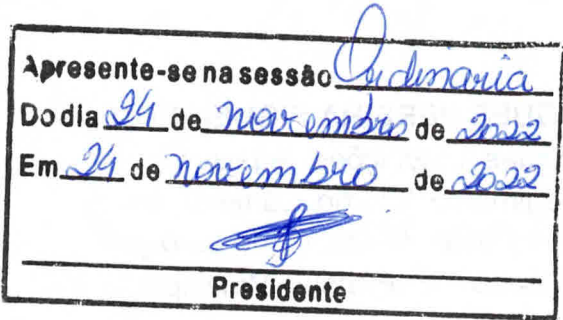 Apresente-se na sessão Ordinaria
Do dia 24 de novembro de 2022
Em 24 de novembro de 2022
Presidente